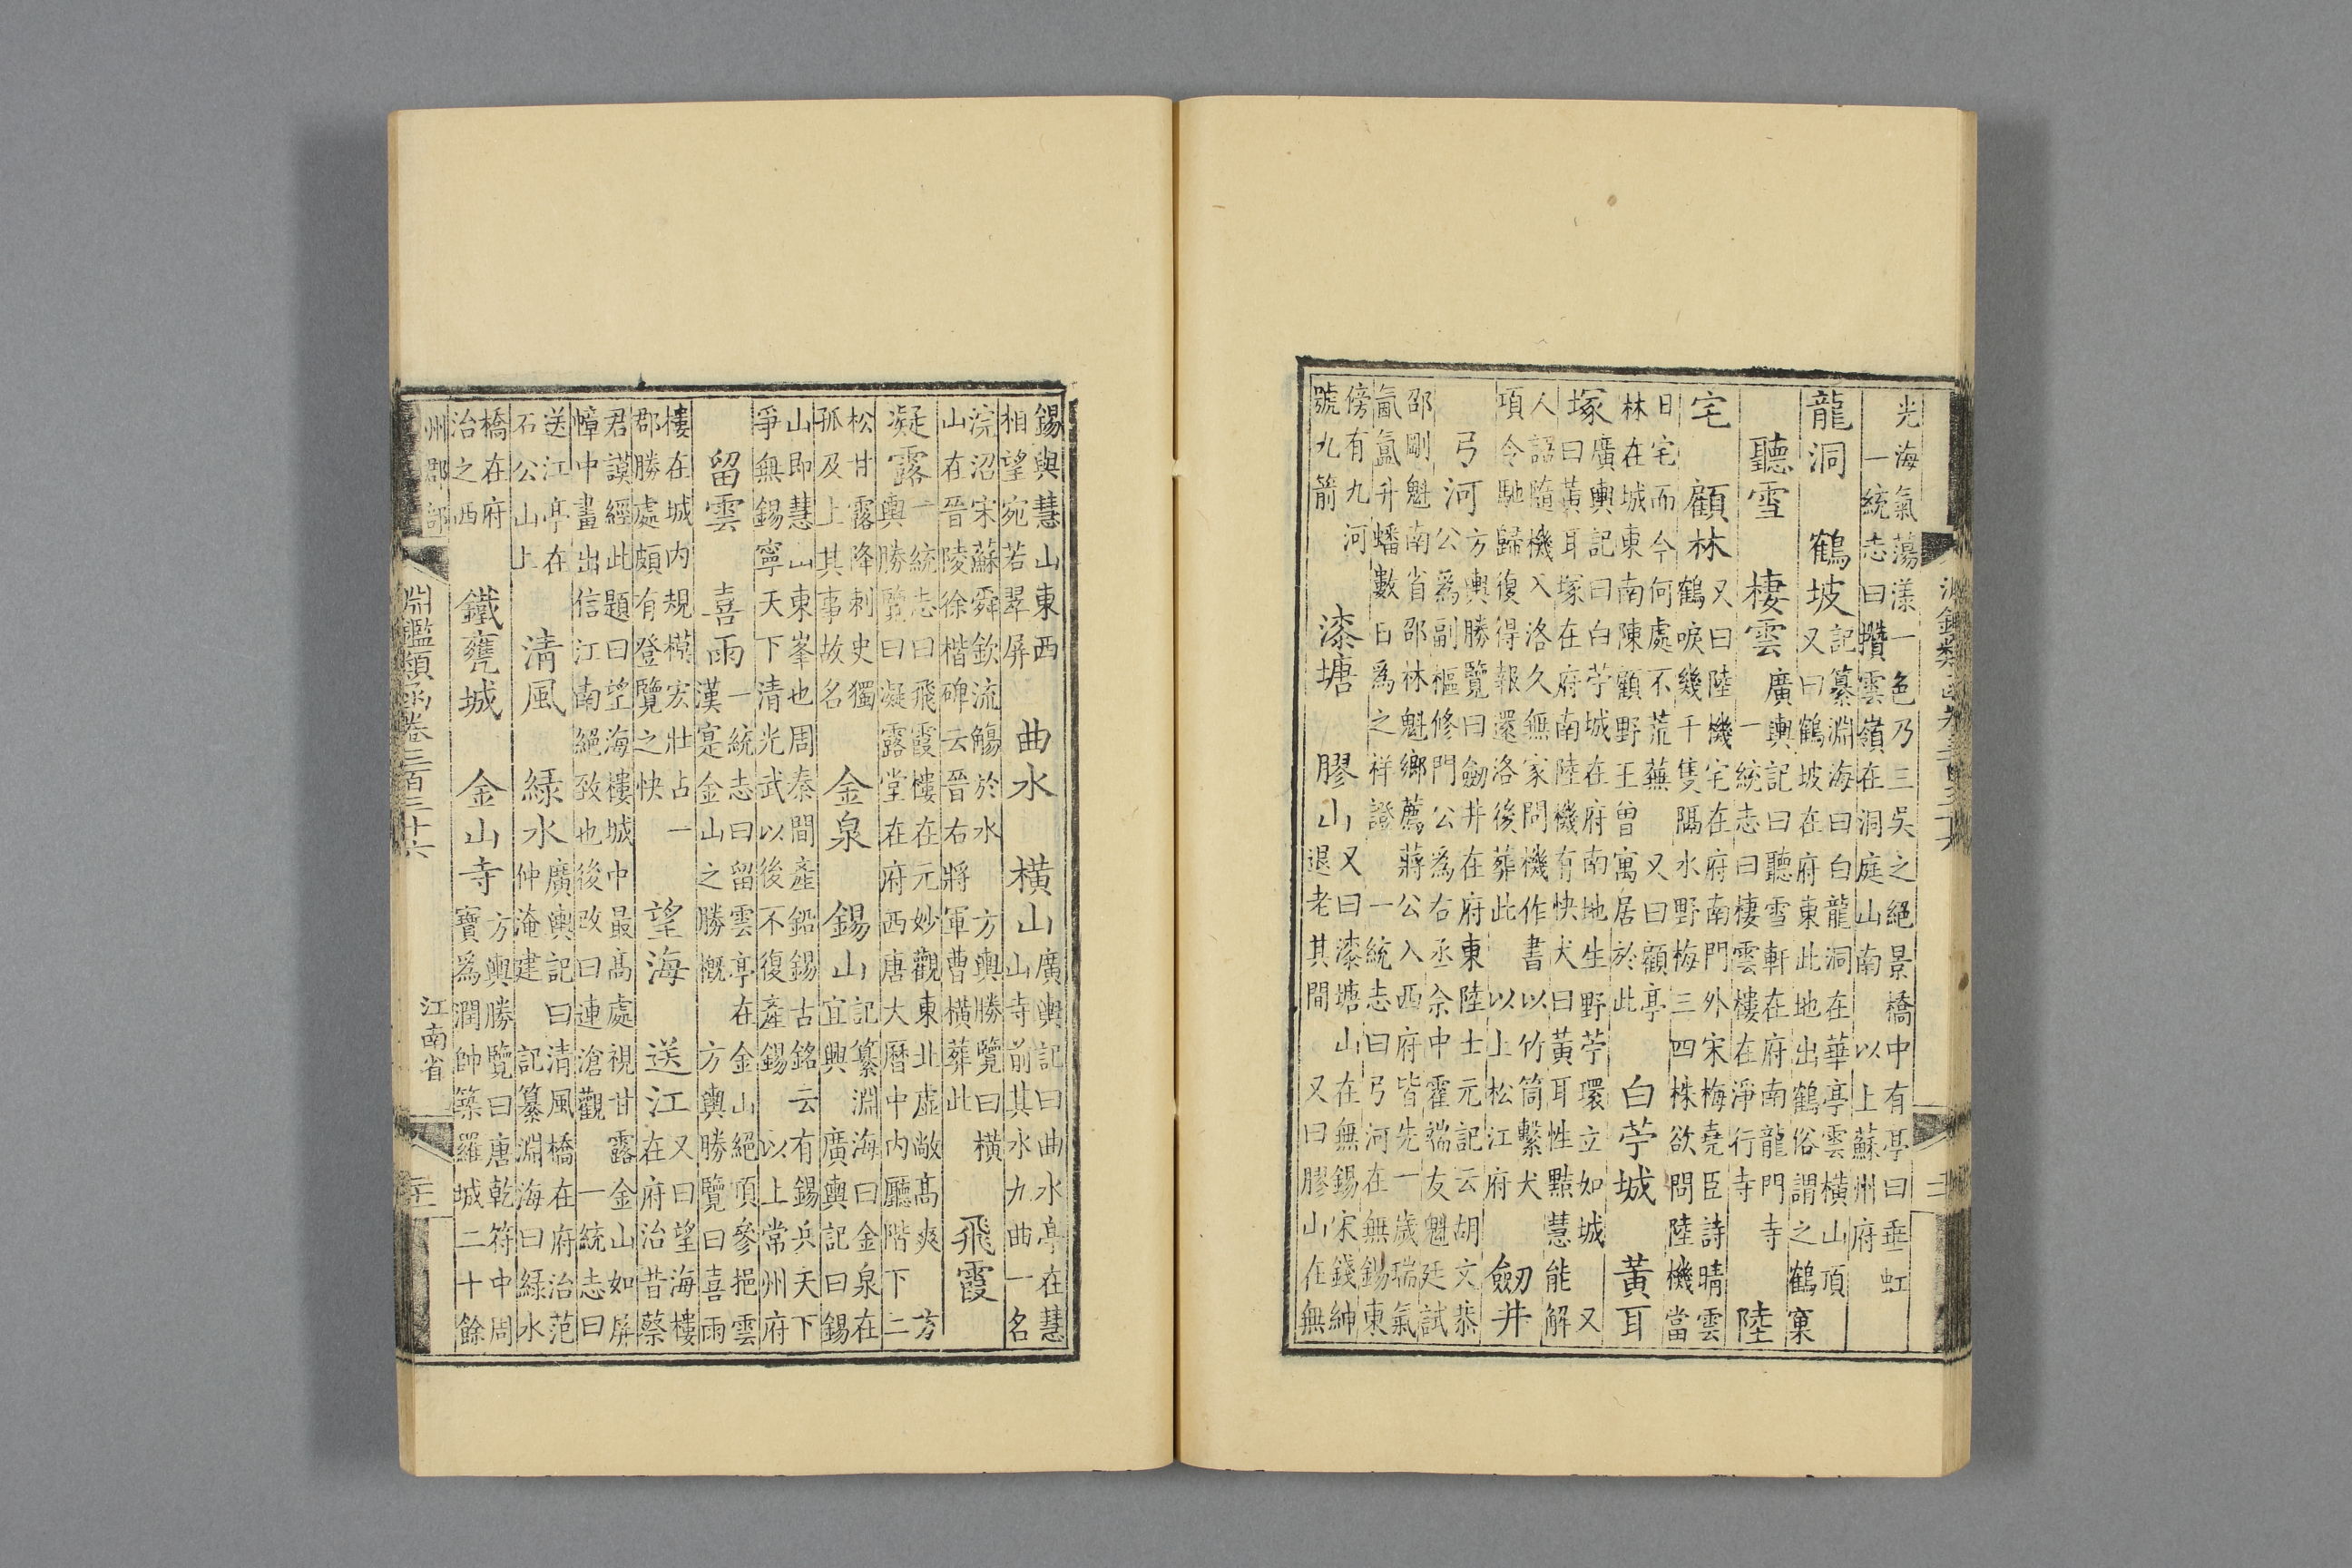 光海氣蕩漾一色乃三吳之絕景橋中有亭曰垂虹
一統志曰攢雲嶺在洞庭山南　以上蘇州府
龍洞　鶴坡
記纂淵海曰白龍洞在華亭雲橫山頂
又曰鶴坡在府東此地出鶴俗謂之鶴窠
聽雪　棲雲
廣輿記曰聽雪軒在府南龍門寺
一統志曰棲雲樓在淨行寺
陸
宅　顧林
又曰陸機宅在府南門外宋梅堯臣詩晴雲
鶴唳幾千隻隔水野梅三四株欲問陸機當
日宅而今何處不荒蕪　又曰顧亭
林在城東南陳顧野王曾寓居於此
白苧城　黃耳
塚
廣輿記曰白苧城在府南地生野苧環立如城　又
曰黃耳塚在府南陸機有快犬曰黃耳性黠慧能解
人語隨機入洛久無家問機作書以竹筒繫犬
項令馳歸復得報還洛後葬此　以上松江府
劒井
弓河
方輿勝覽曰劒井在府東陸士元記云胡文恭
公為副樞修門公為右丞佘中霍端友魁廷試
邵剛魁南省邵林魁鄉薦蔣公入西府皆先一歲瑞氣
氤氳升蟠數日爲之祥證　一統志曰弓河在無錫東
傍有九河
號九箭
漆塘　膠山
又曰漆塘山在無錫宋錢紳
退老其間　又曰膠山在無
錫與慧山東西
相望宛若翠屏
曲水　橫山
廣輿記曰曲水亭在慧
山寺前其水九曲一名
浣沼宋蘇舜欽流觴於水　方輿勝覽曰橫
山在晉陵徐楷碑云晉右將軍曹橫葬此
飛霞
凝露
一統志曰飛霞樓在元妙觀東北虛敞高爽　方
輿勝覽曰凝露堂在府西唐大曆中內廳階下二
松甘露降刺史獨
孤及上其事故名
金泉　錫山
記纂淵海曰金泉在
宜興　廣輿記曰錫
山即慧山東峯也周秦間產鉛錫古銘云有錫兵天下
爭無錫寧天下清光武以後不復產錫　以上常州府
留雲　喜雨
一統志曰留雲亭在金山絕頂參挹雲
漢寔金山之勝概　方輿勝覽曰喜雨
樓在城內規模宏壯占一
郡勝處頗有登覽之快
望海　送江
又曰望海樓
在府治昔蔡
君謨經此題曰望海樓城中最高處視甘露金山如屏
幛中畫出信江南絕致也後改曰連滄觀　一統志曰
送江亭在
石公山上
清風　綠水
廣輿記曰清風橋在府治范
仲淹建　記纂淵海曰綠水
橋在府
治之西
鐵甕城　金山寺
方輿勝覽曰唐乾符中周
寶爲潤帥築羅城二十餘
州郡部
淵鑑類函卷三百三十六
江南省